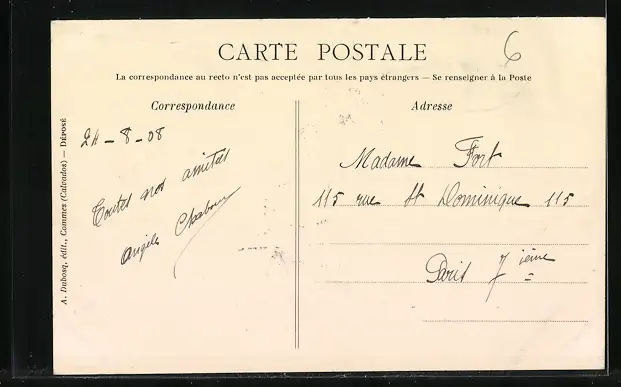 CARTE POSTALE
6
La correspondance au recto n'est pas acceptée par tous les pays étrangers — Se renseigner à la Poste
Correspondance
Adresse
24 - 8 - 08
Toutes nos amitiés
Angèle
Madame Fort
115 rue St Dominique 115
Paris 7 ième
A. Dubosq, édit., Commes (Calvados) — DÉPOSÉ